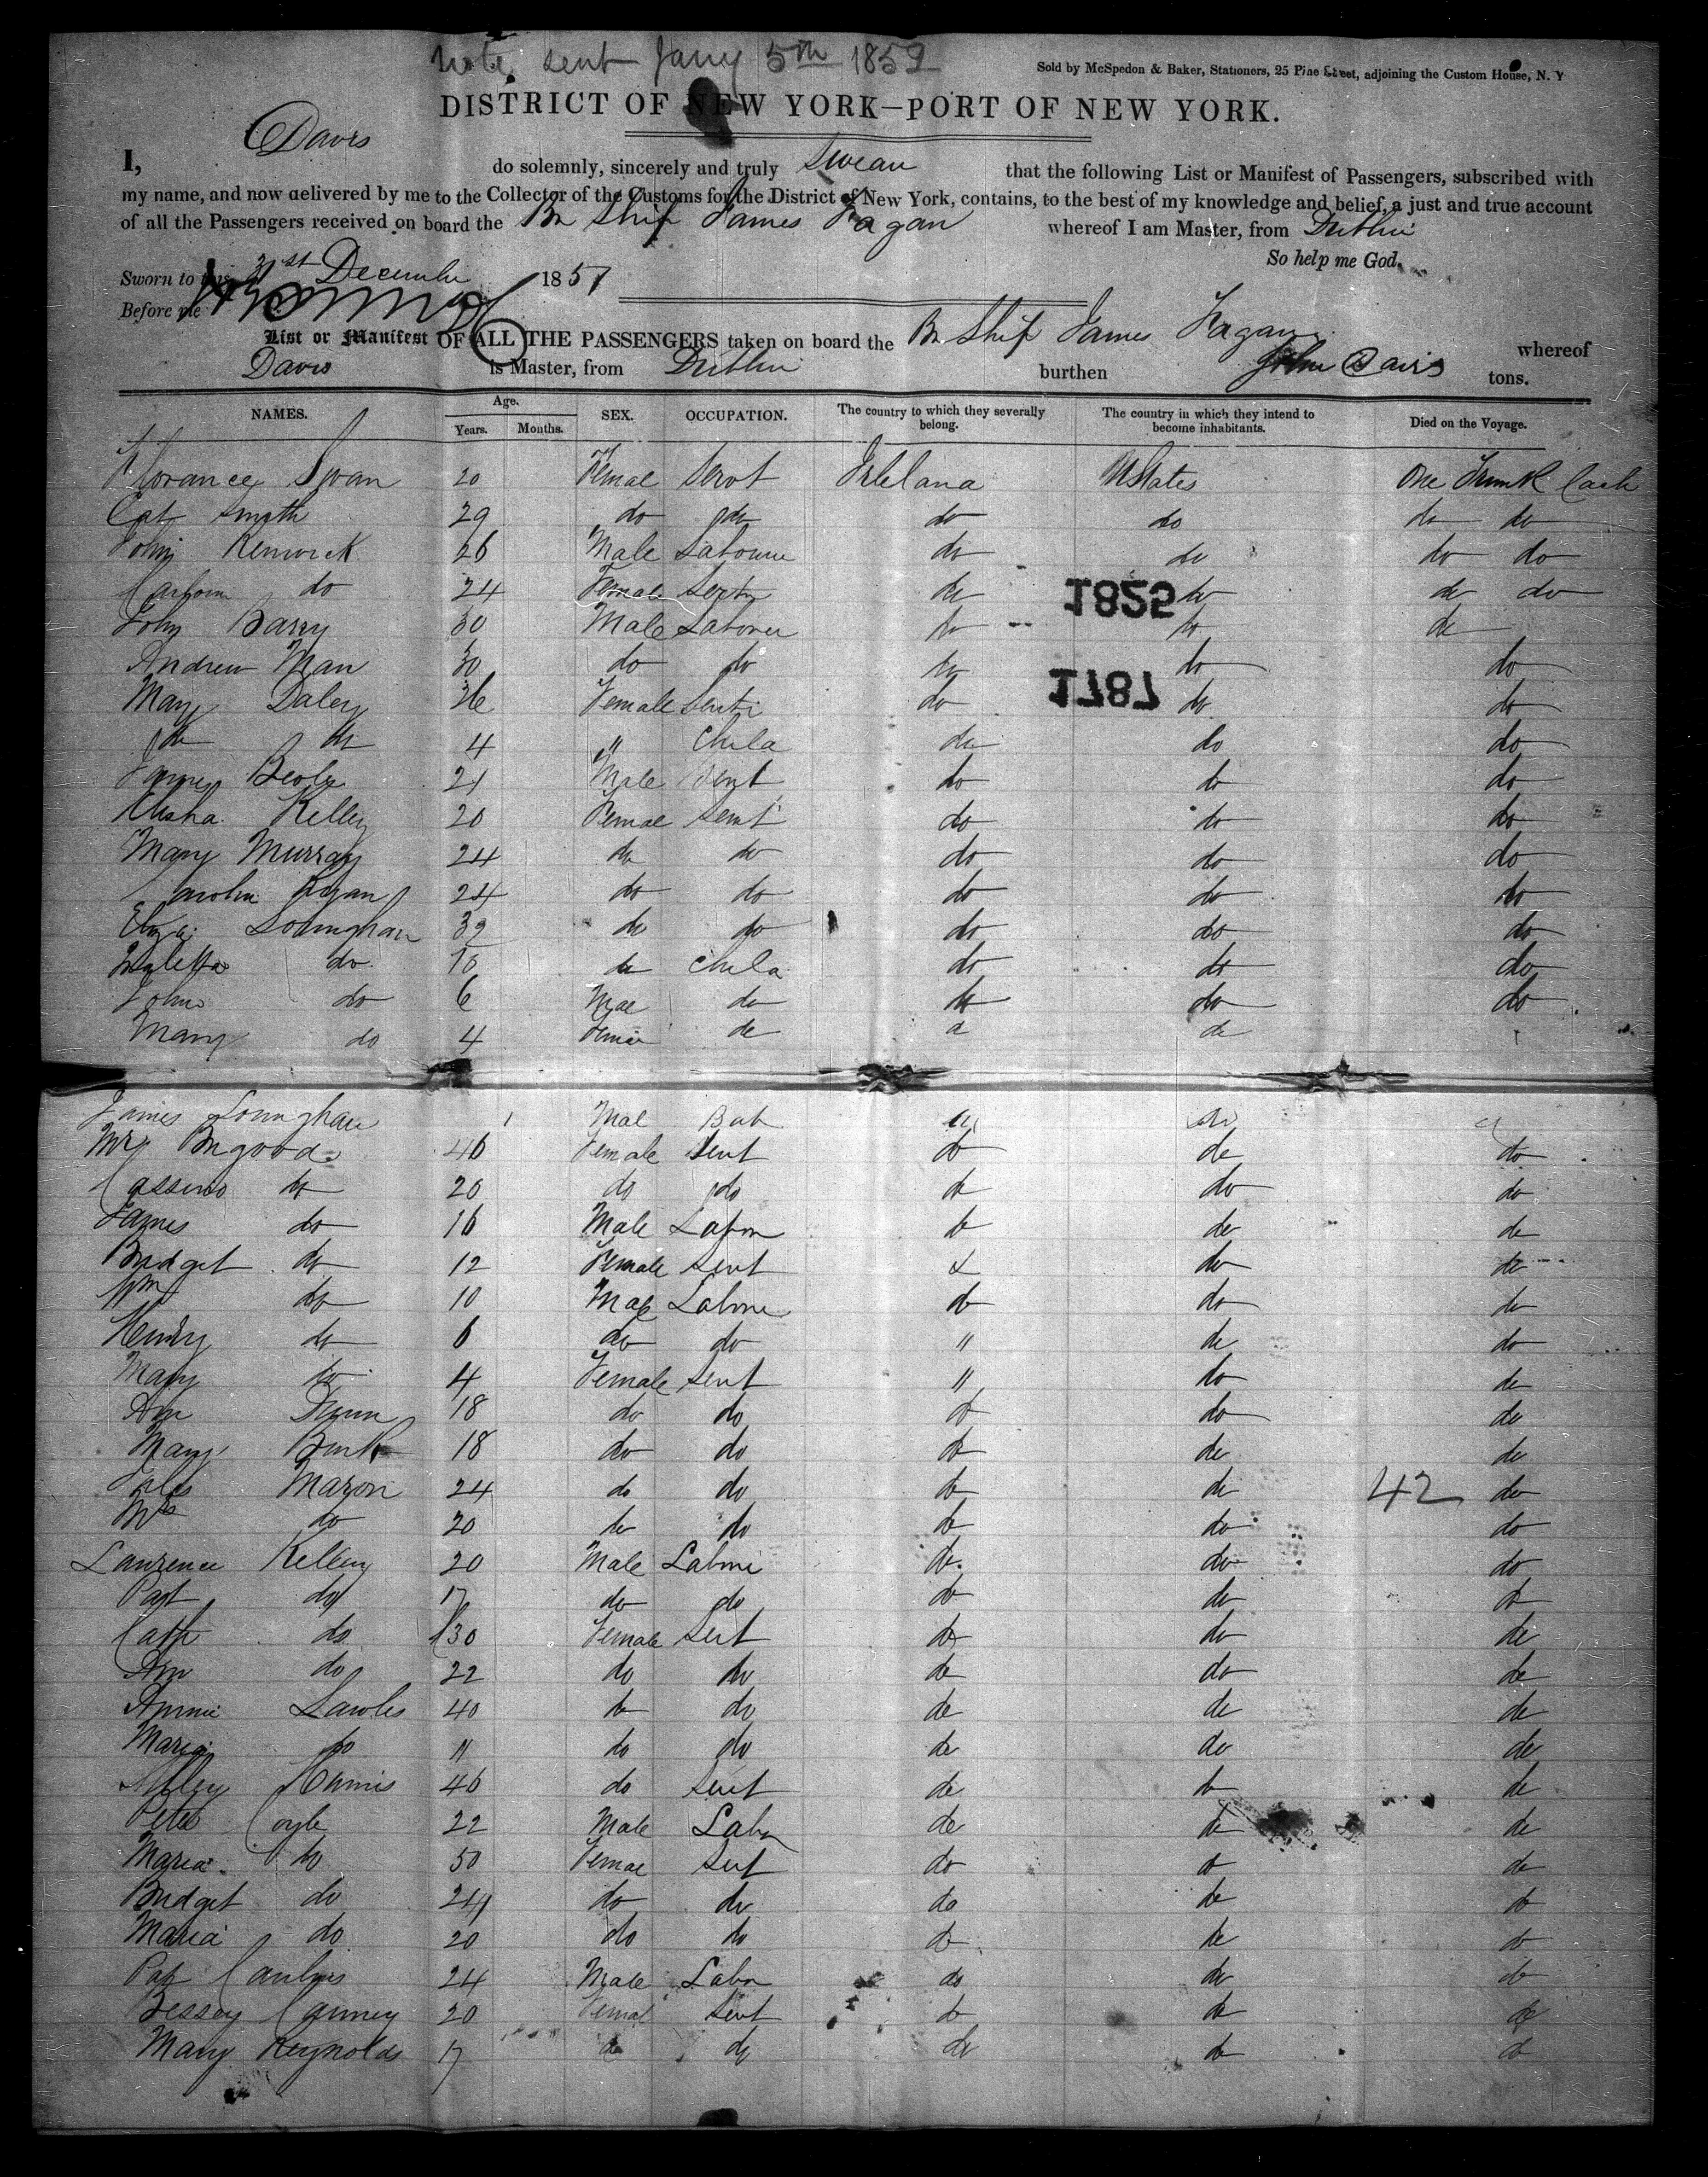 Note sent Jany 5th 1852
Sold by McSpedon & Baker, Stationers, 25 Pine Street, adjoining the Custom House, N. Y
DISTRICT OF NEW YORK—PORT OF NEW YORK.
I, Davis do solemnly, sincerely and truly swear that the following List or Manifest of Passengers, subscribed with
my name, and now delivered by me to the Collector of the Customs for the District of New York, contains, to the best of my knowledge and belief, a just and true account
of all the Passengers received on board the Br Ship James Fagan whereof I am Master, from Dublin
So help me God.
Sworn to this 31st December 1851
Before me
List or Manifest OF ALL THE PASSENGERS taken on board the Br Ship James Fagan whereof
Davis is Master, from Dublin burthen John Davis tons.
NAMES. Age. Years. Months. SEX. OCCUPATION. The country to which they severally belong. The country in which they intend to become inhabitants. Died on the Voyage.
20 Femal Servt UStates One Trunk Each
Cat Smyth 29 do do do do do do
John Renwick 26 Male Labourer do do do do
do 24 Female do do do do
1825
John Barry 30 Male Laborer do do do
Andrew Man 30 do do do do do
1787
Mary Daley 36 Female do do do
do do 4 " Child do do do
James 21 Male Servt do do do
Kelley 20 Femal Servt do do do
Mary Murray 24 do do do do do
24 do do do do do
Eliza 32 do do do do do
do 10 do Child do do do
John do 6 Mal do do do do
Mary do 4 do do
James Mal do
Mrs 40 Female Servt do do do
do 20 do do do do do
James do 16 Male Labor do do do
Bridget do 12 Female Servt do do do
Wm do 10 Male Labore do do do
Henry do 6 do do " do do
Mary do 4 Female Servt " do do
Ann Dunn 18 do do do do do
Mary Burk 18 do do do do do
Mazon 24 do do do do 42 do
Mrs do 20 do do do do do
Lawrence Kelley 20 Male Labore do do do
Pat do 17 do do do do do
Cath do 30 Female Servt do do do
Ann do 22 do do do do do
Annie Lawles 40 do do do do do
Maria do 11 do do do do do
40 do Servt do do do
Peter Coyle 22 Male Labor do do do
Maria do 50 Femal Servt do do do
Bridget do 24 do do do do do
Maria do 20 do do do do do
Pat 24 Male Labor do do do
Bessey 20 Femal Servt do do do
Mary Reynolds 17 do do do do do